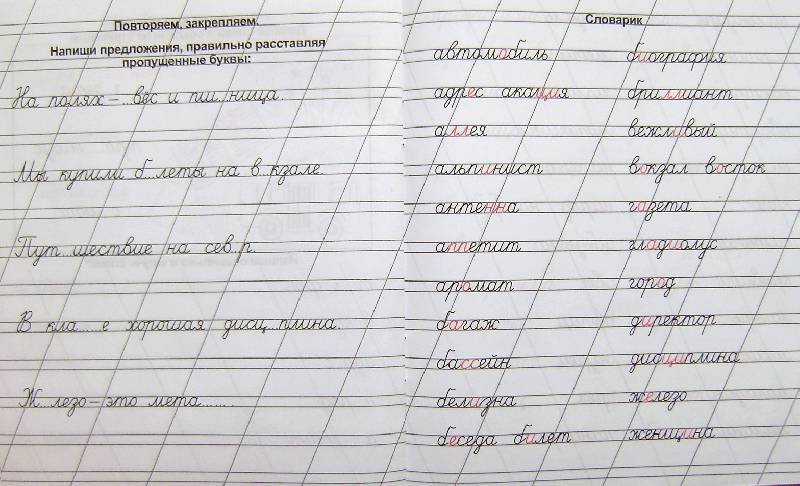 Повторяем, закрепляем.
Напиши предложения, правильно расставляя
пропущенные буквы:
На полях – ...вёс и пш...ница.
Мы купили б...леты на в...кзале.
Пут...шествие на сев...р.
В кла......е хорошая дисц...плина.
Ж...лезо – это мета.......
Словарик
автомобиль
адрес акация
аллея
альпинист
антенна
аппетит
аромат
багаж
бассейн
белизна
беседа билет
биография
бриллиант
вежливый
вокзал восток
газета
гладиолус
город
директор
дисциплина
железо
женщина